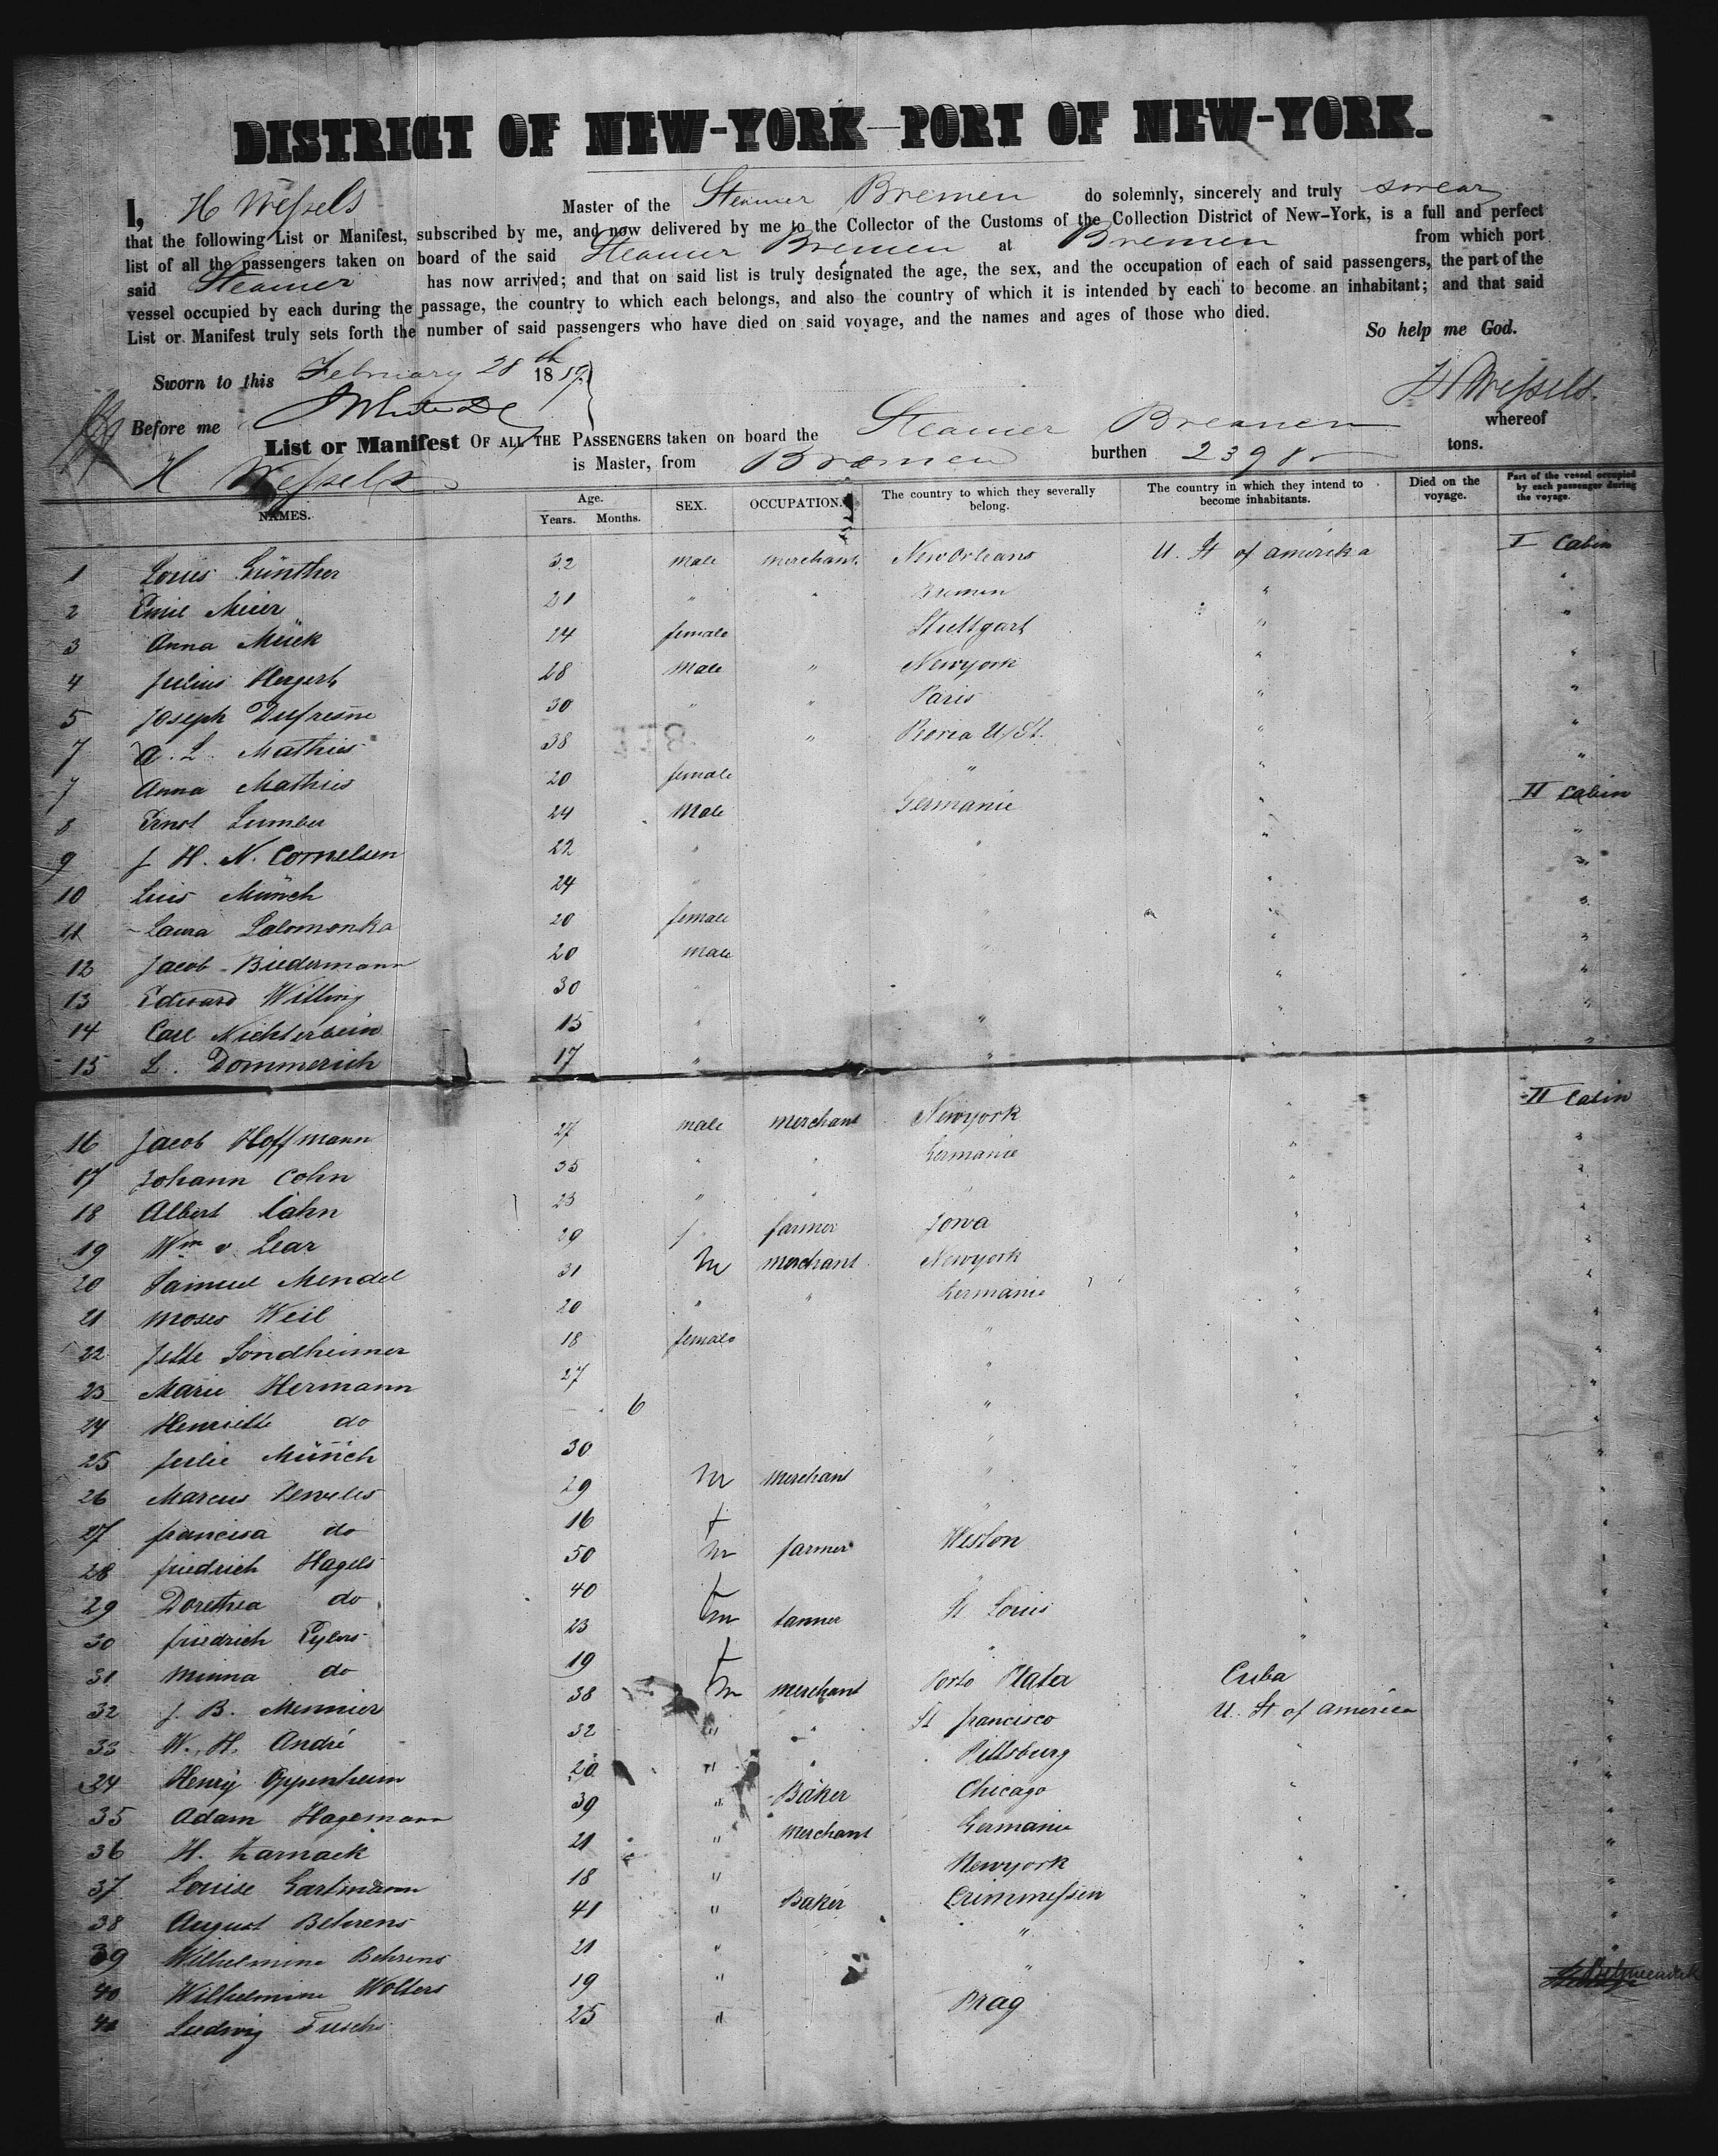 DISTRICT OF NEW-YORK—PORT OF NEW-YORK.
I, H Wessels Master of the Steamer Bremen do solemnly, sincerely and truly swear
that the following List or Manifest, subscribed by me, and now delivered by me to the Collector of the Customs of the Collection District of New-York, is a full and perfect
list of all the passengers taken on board of the said Steamer Bremen at Bremen from which port
said Steamer has now arrived; and that on said list is truly designated the age, the sex, and the occupation of each of said passengers, the part of the
vessel occupied by each during the passage, the country to which each belongs, and also the country of which it is intended by each to become an inhabitant; and that said
List or Manifest truly sets forth the number of said passengers who have died on said voyage, and the names and ages of those who died.
So help me God.
Sworn to this February 28th 1859
H Wessels.
Before me
List or Manifest OF ALL THE PASSENGERS taken on board the Steamer Bremen whereof
H Wessels is Master, from Bremen burthen tons.
NAMES. Age. Years. Months. SEX. OCCUPATION. The country to which they severally belong. The country in which they intend to become inhabitants. Died on the voyage. Part of the vessel occupied by each passenger during the voyage.
1 Louis Günther 32 male merchant New Orleans U. St of amerika I Cabin
2 Emil Meier 21 " " Bremen " "
3 Anna Mück 24 female Stuttgart " "
4 Julius Hergert 28 male " Newyork " "
5 Joseph Dufresne 30 " " Paris " "
7 A. L. Mathies 38 " Peoria U/St. " "
7 Anna Mathies 20 female " " "
8 Ernst 24 Male Germanie " II Cabin
9 J H. N. Cornelsen 22 " " " "
10 Luis Münch 24 " " " "
11 Laura Salomonka 20 female " " "
12 Jacob Biedermann 20 male " " "
13 Edward Willing 30 " " "
14 Carl Nichterbein 15 " " " "
15 L. Dommerich 17 " " " "
16 Jacob Hoffmann 27 male merchant Newyork " II Cabin
17 Johann Cohn 35 " " Germanie " "
18 Albert Cahn 23 " " " " "
19 Wm v Lear 29 " farmer Jowa " "
20 Samuel Mendel 31 m merchant Newyork " "
21 Moses Weil 20 " " Germanie " "
22 Jette Sondheimer 18 female " " "
23 Marie Hermann 27 " " "
24 Henriette do 6 " " "
25 Julie Münch 30 " " "
26 Marcus 29 m merchant " " "
27 francisca do 16 f " " "
28 friedrich Hagels 50 m farmer Weston " "
29 Dorethea do 40 f " " "
30 friedrich Eylers 23 m tanner St Louis " "
31 Minna do 19 f " " "
32 J. B. Mennier 38 m merchant Porto Plata Cuba "
33 W. H. André 32 " " St francisco U. St of america "
34 Henry Oppenheim 20 " " Pittsburg " "
35 Adam Hagemann 39 " Bäker Chicago " "
36 H. Karnack 21 " merchant Germanie " "
37 Louise Gartmann 18 " Newyork " "
38 August Behrens 41 " Baker Crimmessen " "
39 Wilhelmine Behrens 21 " " " "
40 Wilhelmine Wolters 19 " " "
41 Ludwig Fuschs 25 " Prag